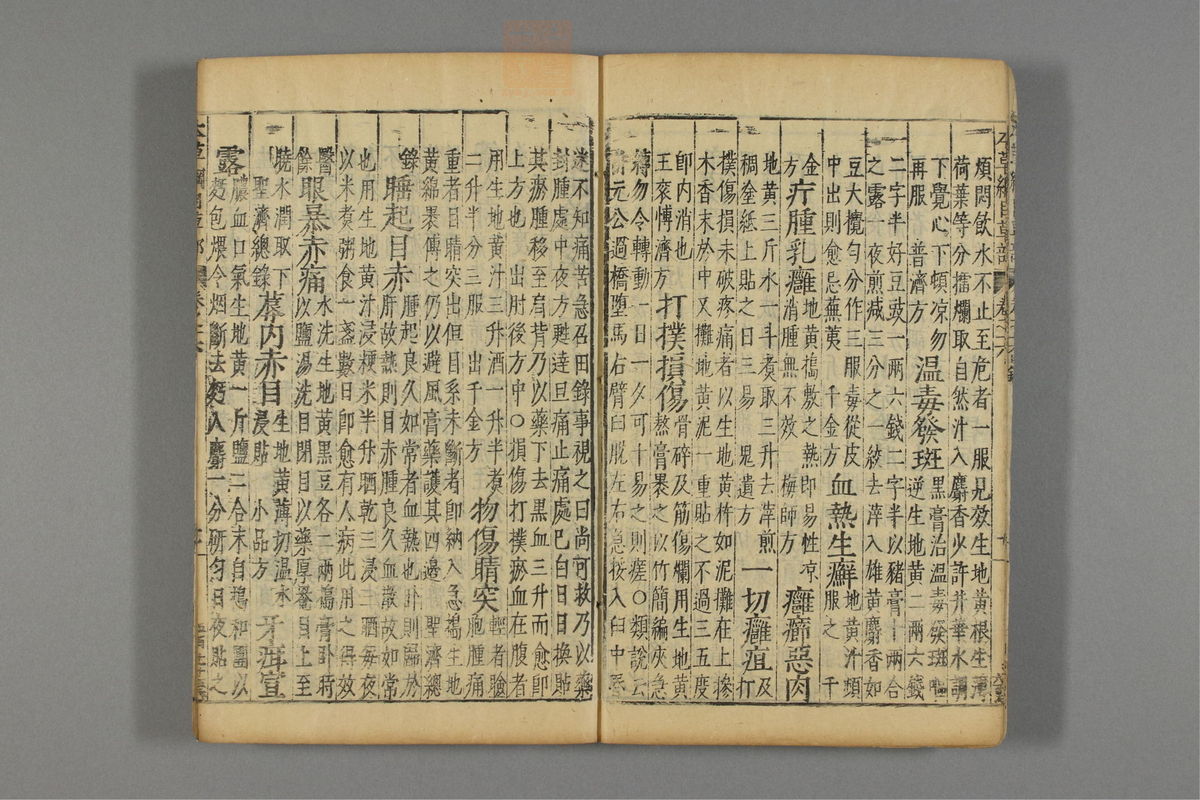 煩悶飲水不止至危者一服見效生地黃根生薄
荷葉等分擂爛取自然汁入麝香少許井華水調
下覺心下頓凉勿
再服 普濟方 溫毒發斑 黑膏治溫毒發斑
逆生地黃二兩六錢
二字半好豆豉一兩六錢二字半以豬膏十兩合
之露一夜煎減三分之一絞去滓入雄黃麝香如
豆大攪勻分作三服毒從皮
中出則愈忌蕪荑 千金方 血熱生癬 地黃汁頻
服之 千
金
方 疔腫乳癰 地黃搗敷之熱即易性凉
消腫無不效 梅師方 癰癤惡肉
地黃三斤水一斗煑取三升去滓煎
稠塗紙上貼之日三易 鬼遺方 一切癰疽 及
打
撲傷損未破疼痛者以生地黃杵如泥攤在上摻
木香末於中又攤地黃泥一重貼之不過三五度
即內消也
王袞愽濟方 打撲損傷 骨碎及筋傷爛用生地黃
熬膏褁之以竹簡編夾急
縛勿令轉動一日一夕可十易之則瘥〇類說云
元公過橋墮馬右臂臼脫左右急挼入臼中
迷不知痛苦急召田錄事視之曰尚可救乃以藥
封腫處中夜方甦達旦痛止痛處已白日日換貼
其瘀腫移至肩背乃以藥下去黑血三升而愈即
上方也 出肘後方中〇損傷打撲瘀血在腹者
用生地黃汁三升酒一升半煑
二升半分三服 出千金方 物傷睛突 輕者瞼
胞腫痛
重者目睛突出但目系未斷者即納入急搗生地
黃綿褁傅之仍以避風膏藥護其四邊 聖濟總
錄 睡起目赤 腫起良久如常者血熱也卧則血歸於
肝故熱則目赤腫良久血散故如常
也用生地黃汁浸粳米半升晒乾三浸三晒每夜
以米煑粥食一盞數日即愈有人病此用之得效
醫
餘 眼暴赤痛 水洗生地黃黑豆各二兩搗膏卧時
以鹽湯洗目閉目以藥厚罨目上至
曉水潤取下
聖濟總錄 蓐內赤目 生地黃薄切溫水
浸貼 小品方 牙疳宣
露 膿血口氣生地黃一斤鹽二合末自搗和團以
麪包煨令烟斷去麪入麝一分研勻日夜貼之